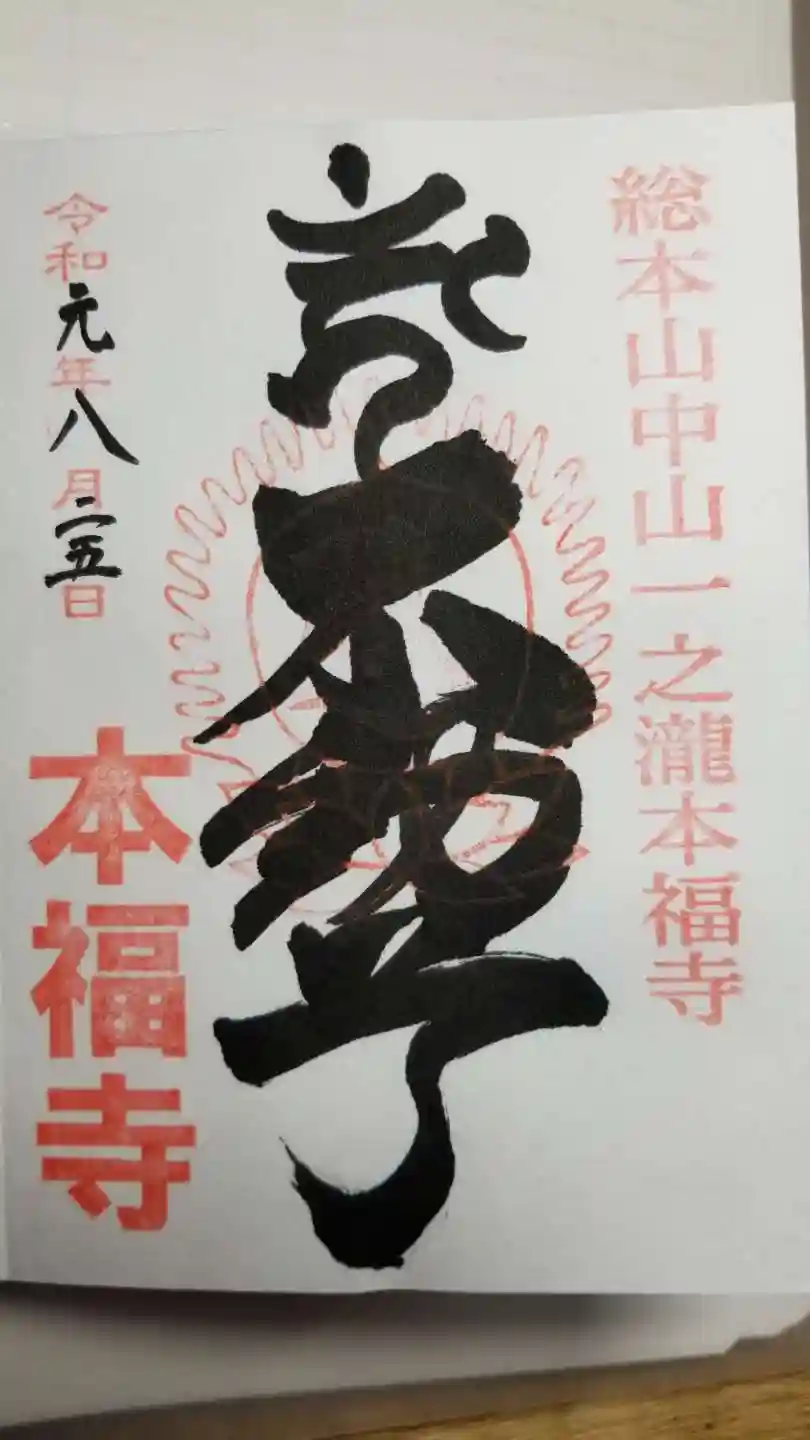 総本山中山一之瀧本福寺
龍不動尊
令和元年八月二五日
本福寺